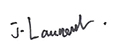 J. Laurent.